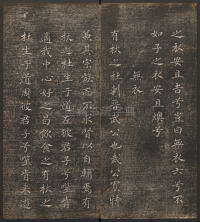 之衣安且吉兮豈曰無衣六兮不
如子之衣安且燠兮
無衣
有杕之杜刺晉武公也武公寡特
兼其宗族而不求賢以自輔焉有
杕之杜生于道左彼君子兮噬肯
適我中心好之曷飲食之有杕之
杜生于道周彼君子兮噬肯來遊